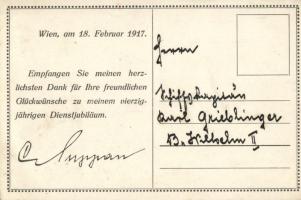 Wien, am 18. Februar 1917.
Empfangen Sie meinen herz-
lichsten Dank für Ihre freundlichen
Glückwünsche zu meinem vierzig-
jährigen Dienstjubiläum.
C Suppan
Herrn
Schiffskapitän
Karl Grieblinger
B. Wilhelm II